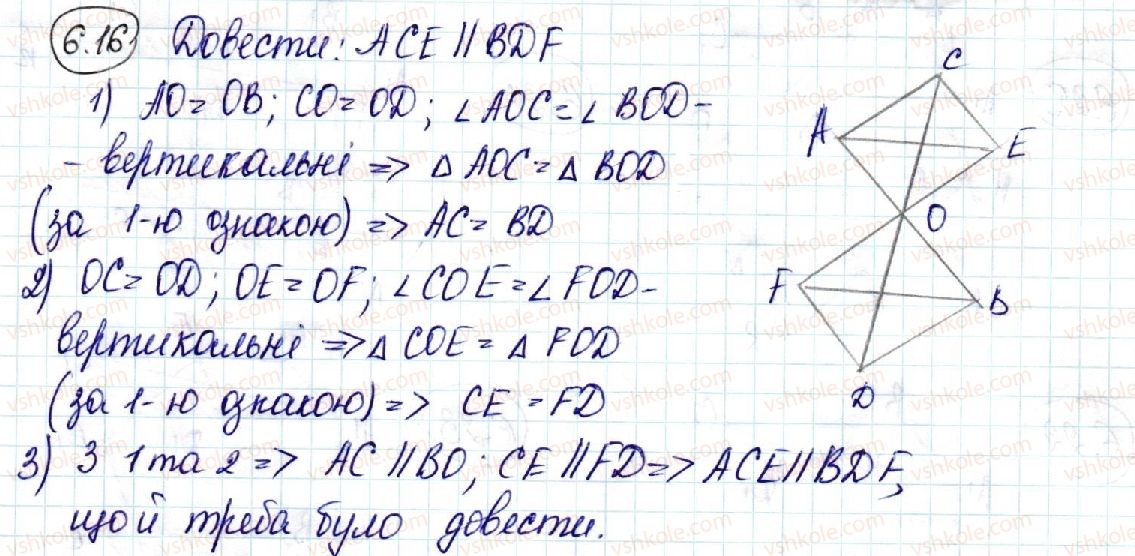 6.16 Довести: ACE || BDF
1) AO = OB; CO = OD; ∠AOC = ∠BOD -
- вертикальні => △ AOC = △ BOD
(за 1-ю ознакою) => AC = BD
2) OC = OD; OE = OF; ∠COE = ∠FOD -
вертикальні => △ COE = △ FOD
(за 1-ю ознакою) => CE = FD
3) З 1 та 2 => AC || BO; CE || FD => ACE || BDF,
щой треба було довести.
C
A
E
O
F
B
D
vshkole.com